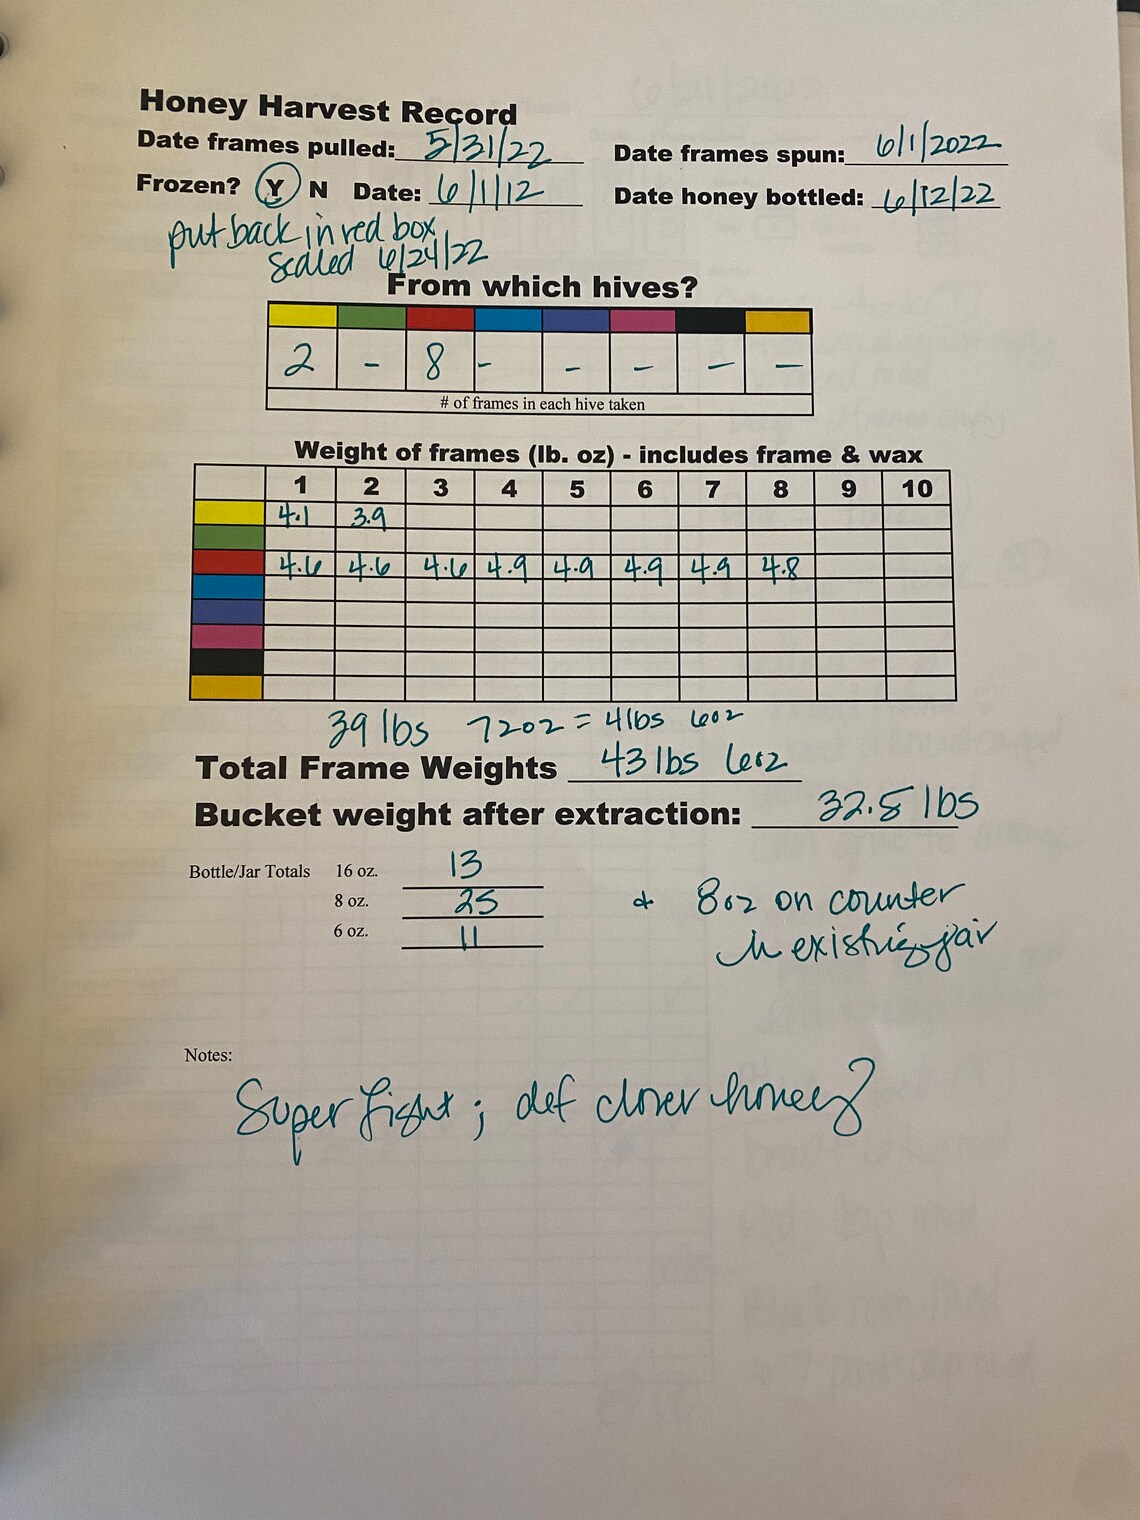 Honey Harvest Record
Date frames pulled: 5/31/22 Date frames spun: 6/1/2022
Frozen? Y N Date: 6/1/12 Date honey bottled: 6/12/22
put back in red box
sealed 6/24/22
From which hives?
2 - 8 - - - - -
# of frames in each hive taken
Weight of frames (lb. oz) - includes frame & wax
1 2 3 4 5 6 7 8 9 10
4.1 3.9
4.6 4.6 4.6 4.9 4.9 4.9 4.9 4.8
39 lbs 72oz = 4lbs 6oz
Total Frame Weights 43 lbs 6oz
Bucket weight after extraction: 32.5 lbs
Bottle/Jar Totals 16 oz. 13
8 oz. 25 & 8oz on counter
6 oz. 11 in existing jar
Notes:
Super light; def clover honey?